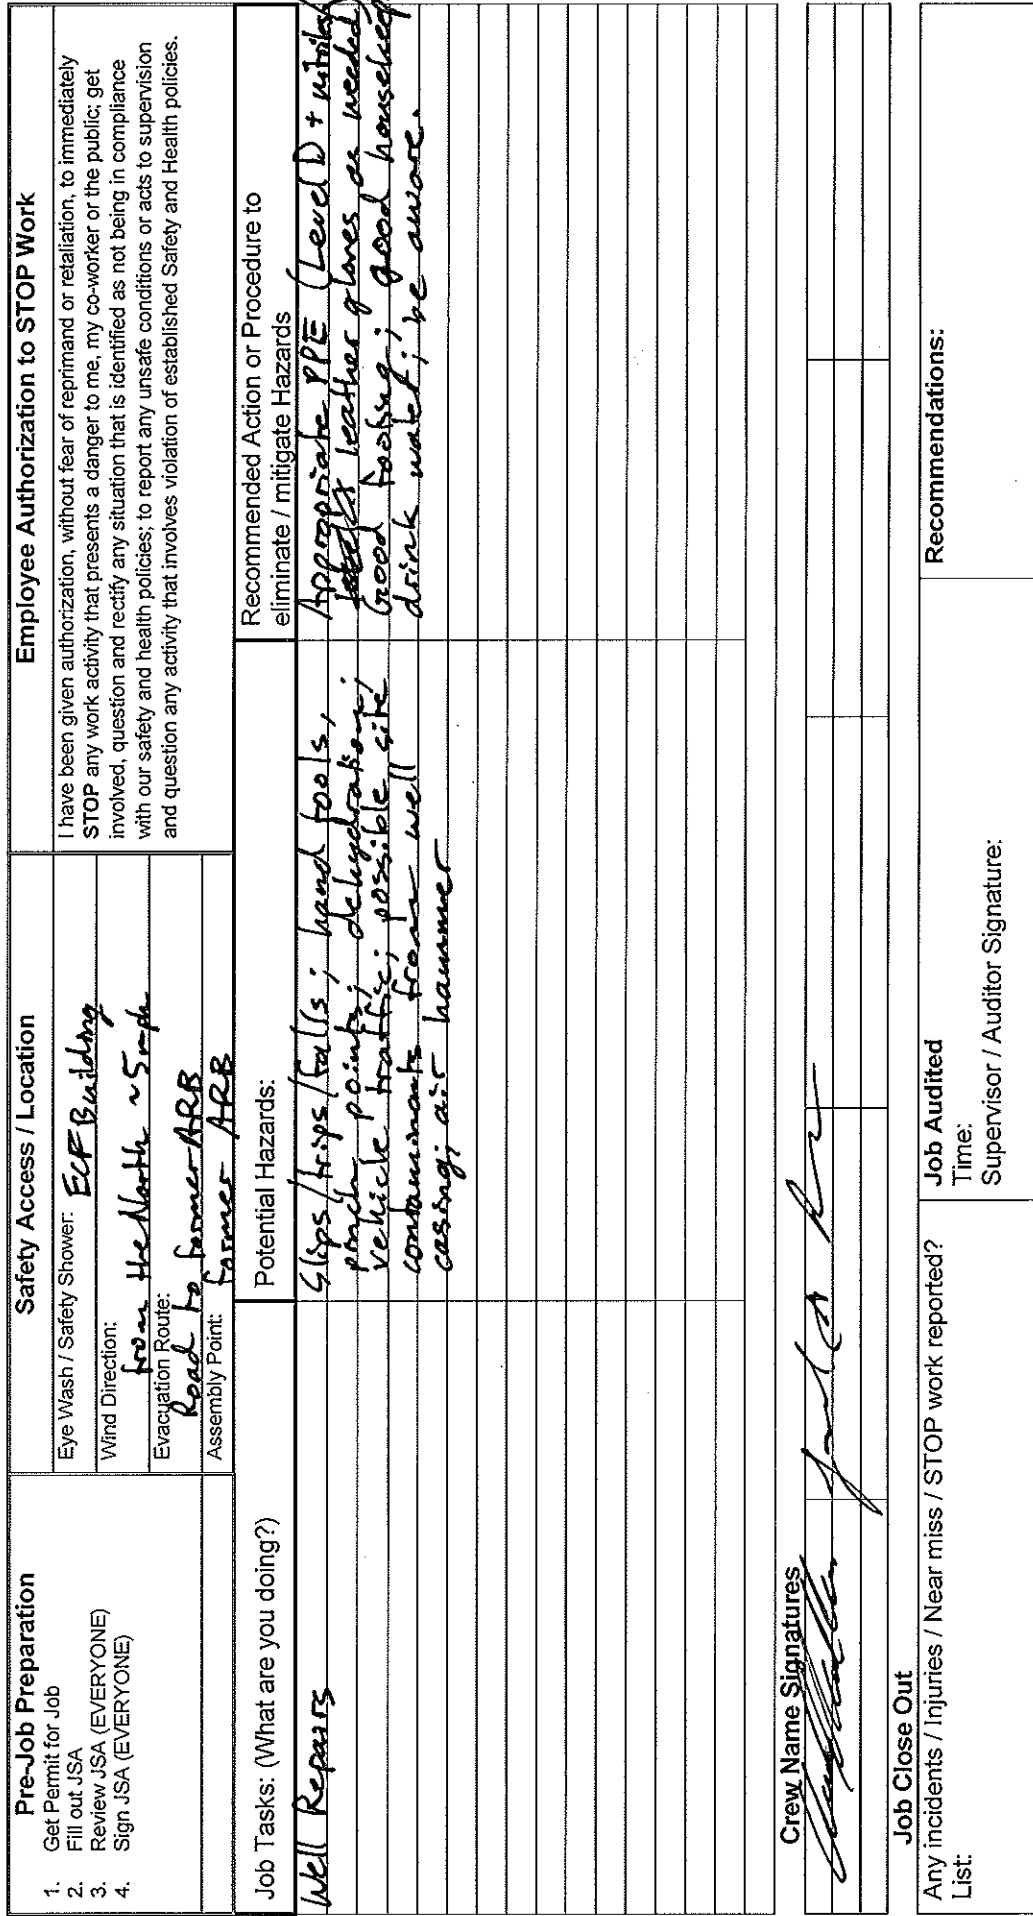 Pre-Job Preparation
1. Get Permit for Job
2. Fill out JSA
3. Review JSA (EVERYONE)
4. Sign JSA (EVERYONE)
Safety Access / Location
Eye Wash / Safety Shower: ECF Building
Wind Direction:
from the North ~5mph
Evacuation Route:
Road to former ARB
Assembly Point:
former ARB
Employee Authorization to STOP Work
I have been given authorization, without fear of reprimand or retaliation, to immediately
STOP any work activity that presents a danger to me, my co-worker or the public; get
involved, question and rectify any situation that is identified as not being in compliance
with our safety and health policies; to report any unsafe conditions or acts to supervision
and question any activity that involves violation of established Safety and Health policies.
Job Tasks: (What are you doing?)
Well Repairs
Potential Hazards:
Slips/trips/falls; hand tools,
pinch points; dehydration;
vehicle traffic; possible site
contaminants from well
casing; air hammer
Recommended Action or Procedure to
eliminate / mitigate Hazards
Appropriate PPE (Level D + nitriles
leather gloves as needed)
Good footing; good housekeep
drink water; be aware.
Crew Name Signatures
Job Close Out
Any incidents / Injuries / Near miss / STOP work reported?
List:
Job Audited
Time:
Supervisor / Auditor Signature:
Recommendations: